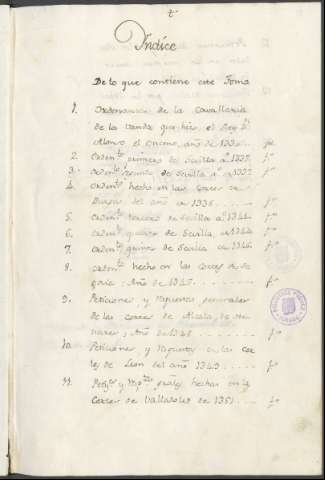 t
Indice
De lo que contiene este Tomo
1. Ordenanza de la Cavalleria
de la Vanda que hizo el Rey Dn.
Alonso el Onceno, año de 1330.
2. Ordento. primero de Sevilla ao. 1337. fo
3. Ordento. segundo de Sevilla ao. de 1337. fo
4. Ordento. hecho en las Cortes de
Burgos del año de 1338. fo
5. Ordento. tercero de Sevilla ao. 1341. fo
6. Ordento. quarto de Sevilla ao. 1344 fo
7. Ordento. quinto de Sevilla de 1346 fo
8. Ordento. hecho en las Cortes de Se
govia; Año de 1347. fo
9. Peticiones, y respuestas generales
de las Cortes de Alcala de He
nares; Año de 1348. fo
10. Peticiones y respuestas en las Cor
tes de Leon del año 1349. fo
11. Petizs. y resptas. grales. hechas en las
Cortes de Valladolid de 1351. fo